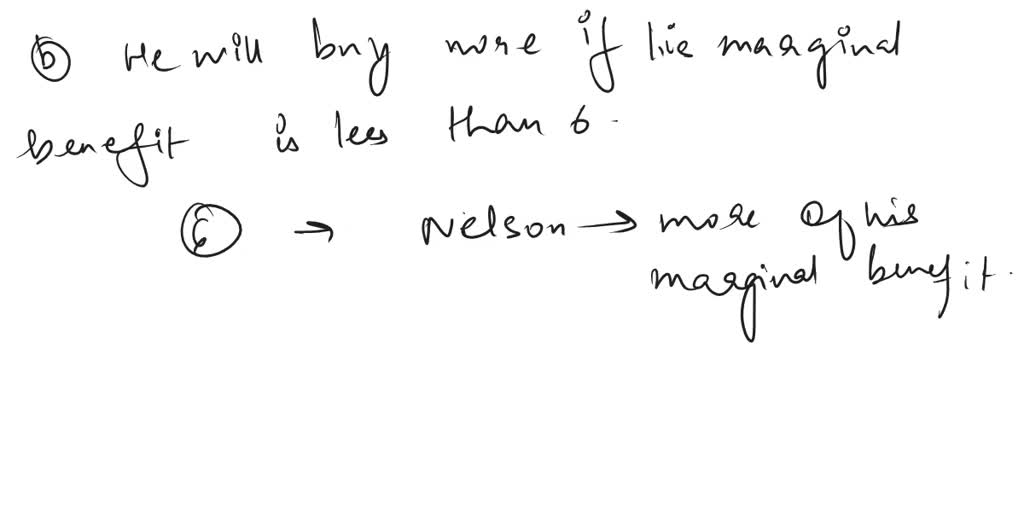 (b) He will buy more if lie marginal
benefit is less than 6.
(c) → Nelson → more of his
marginal benefit.